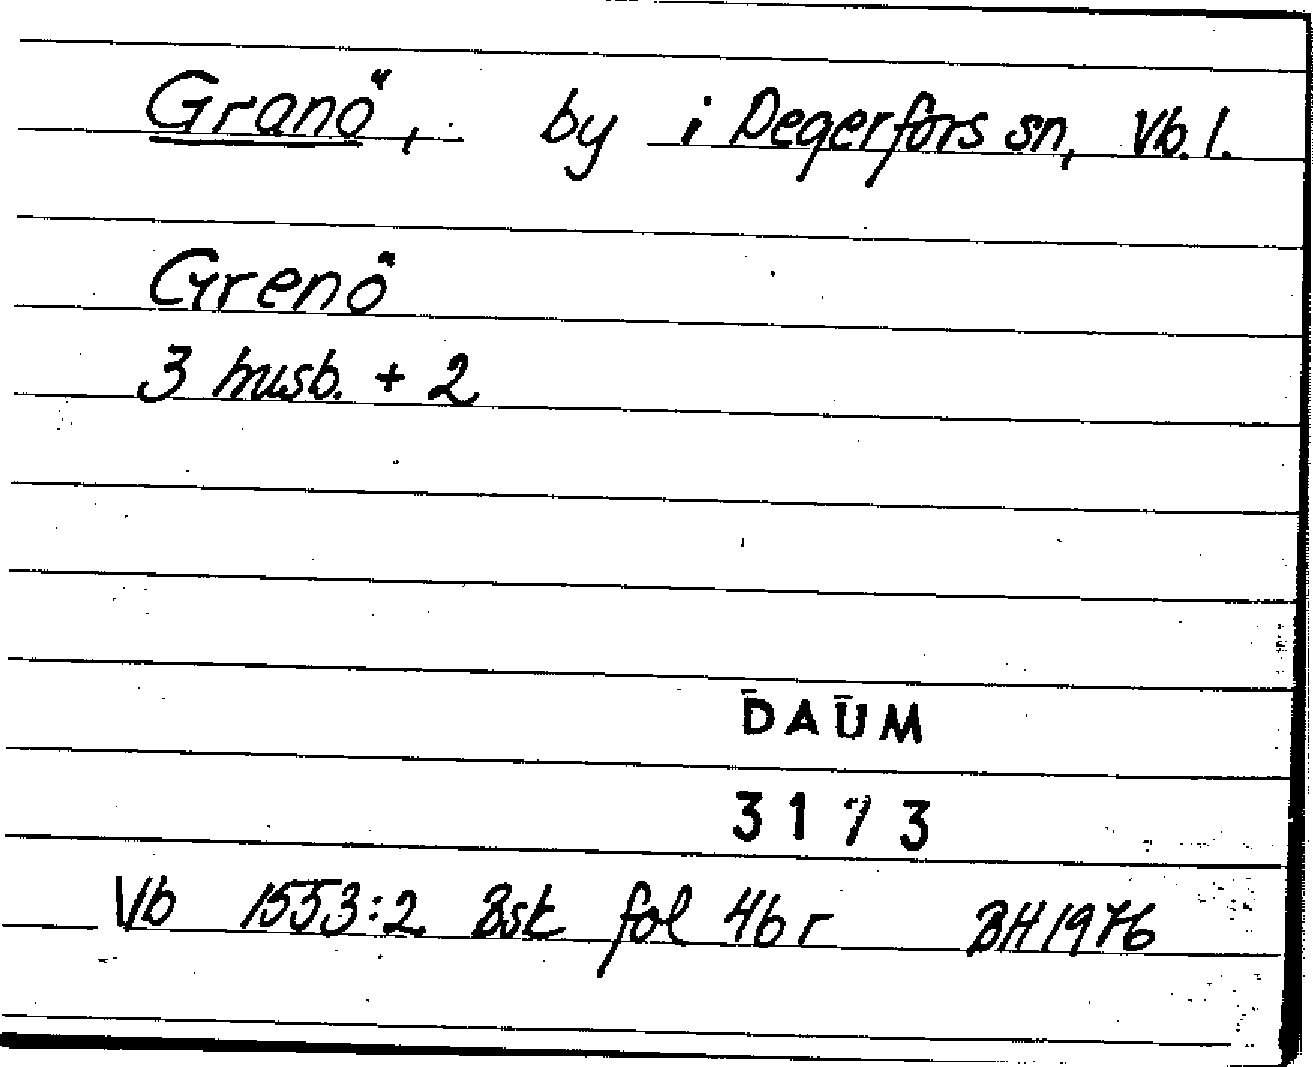 Granö, by i Degerfors sn, Vb. l.
Grenö
3 husb. + 2
DAUM
3173
Vb 1553:2 Bsk fol 46 r BH 1976